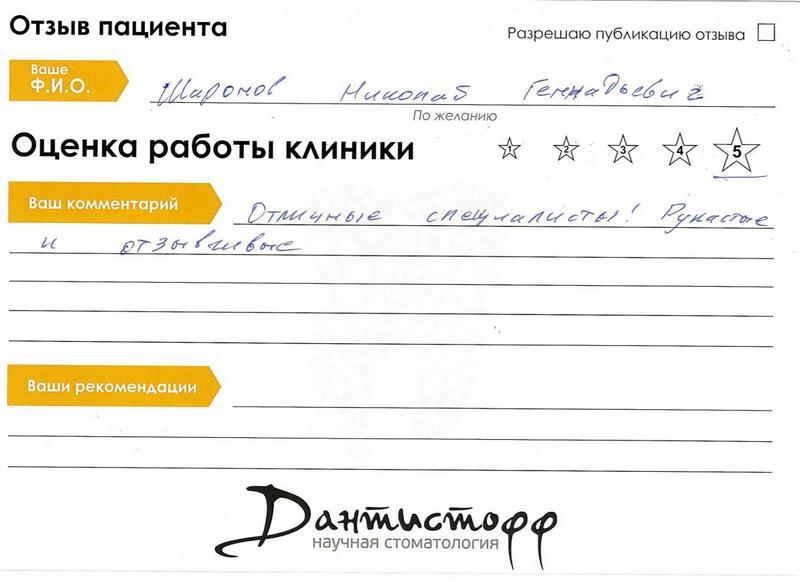 Отзыв пациента
Разрешаю публикацию отзыва
Ваше
Ф.И.О.
Широнов Николай Геннадьевич
По желанию
Оценка работы клиники
1 2 3 4 5
Ваш комментарий
Отличные специалисты! Рукастые
и отзывчивые
Ваши рекомендации
Дантистофф
научная стоматология